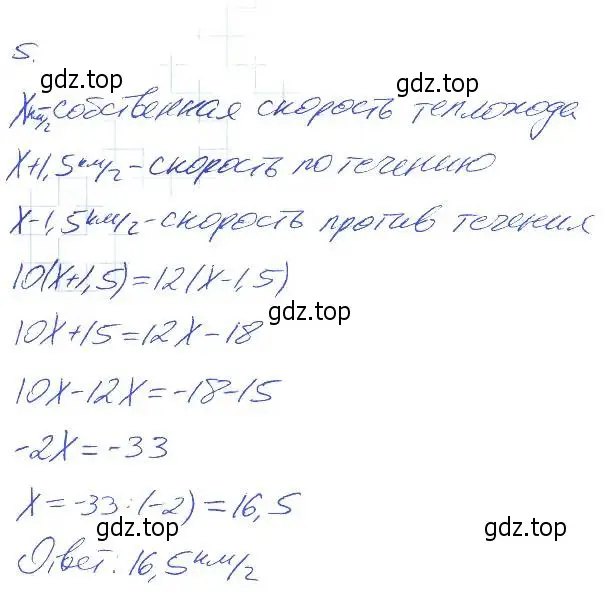 5.
gdz.top gdz.top
x км/г - собственная скорость теплохода
x+1,5 км/г - скорость по течению
gdz.top
x-1,5 км/г - скорость против течения
10(x+1,5)=12(x-1,5)
gdz.top
10x+15=12x-18
10x-12x=-18-15
-2x=-33
x=-33:(-2)=16,5
gdz.top gdz.top
Ответ: 16,5 км/г